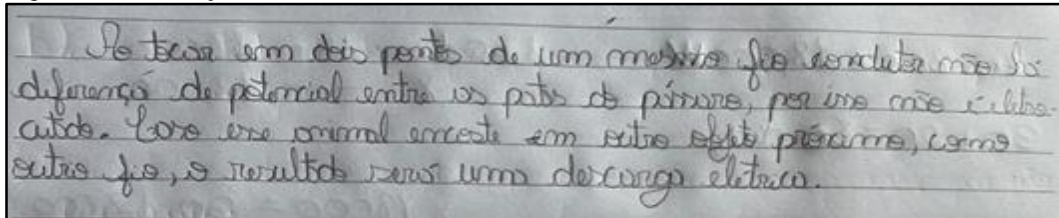 Ao tocar em dois pontos de um mesmo fio condutor não há
diferença de potencial entre as patas do pássaro, por isso não é eletro
cutado. Caso esse animal encoste em outro objeto próximo, como
outro fio, o resultado será uma descarga elétrica.